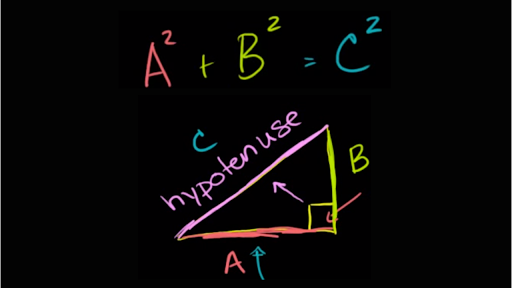 A² + B² = C²
C
hypotenuse
B
A